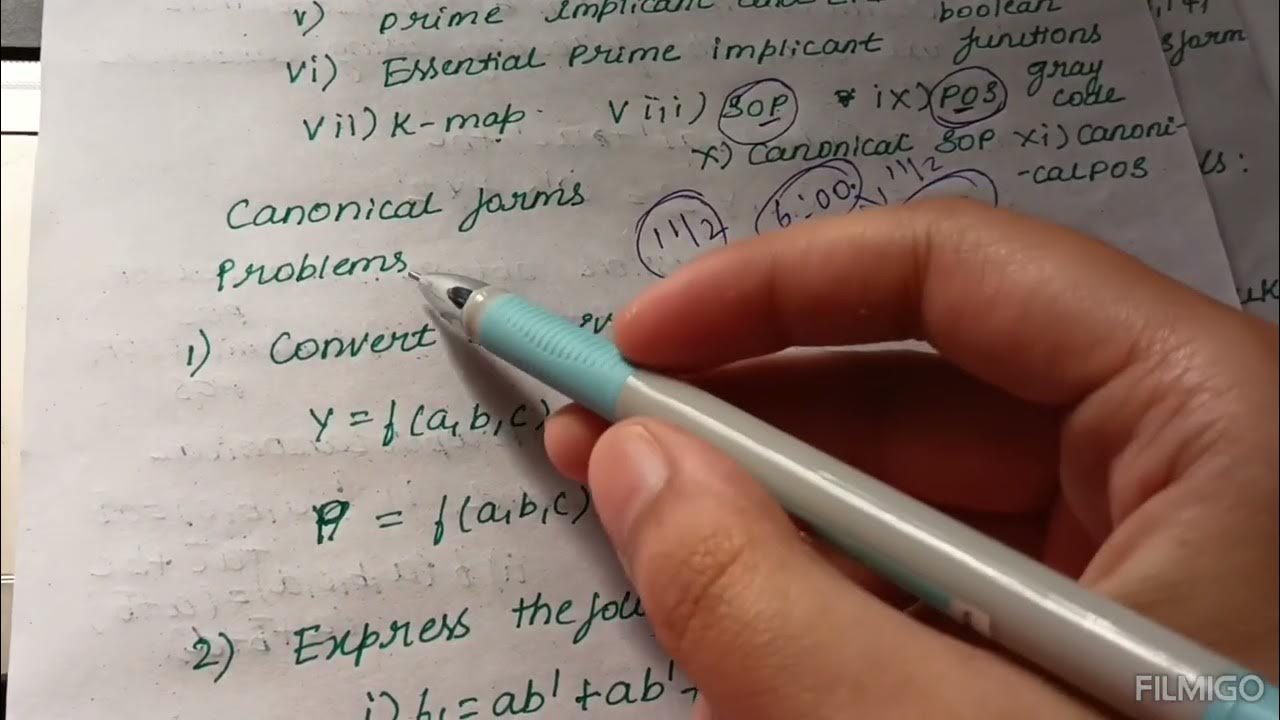 v) prime implicant
boolean
vi) Essential prime implicant functions
gray
code
vii) K-map. viii) SOP ix) POS
x) Canonical SOP xi) canoni-
-cal POS
Canonical forms
11/2 6:00 11/2
Problems
1) Convert
Y = f(a, b, c)
P = f(a, b, c)
2) Express the foll
i) f1 = ab' + ab' +
FILMIGO